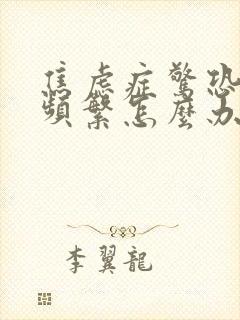 焦虑症驚恐
頻繁怎麼办
李翼龍